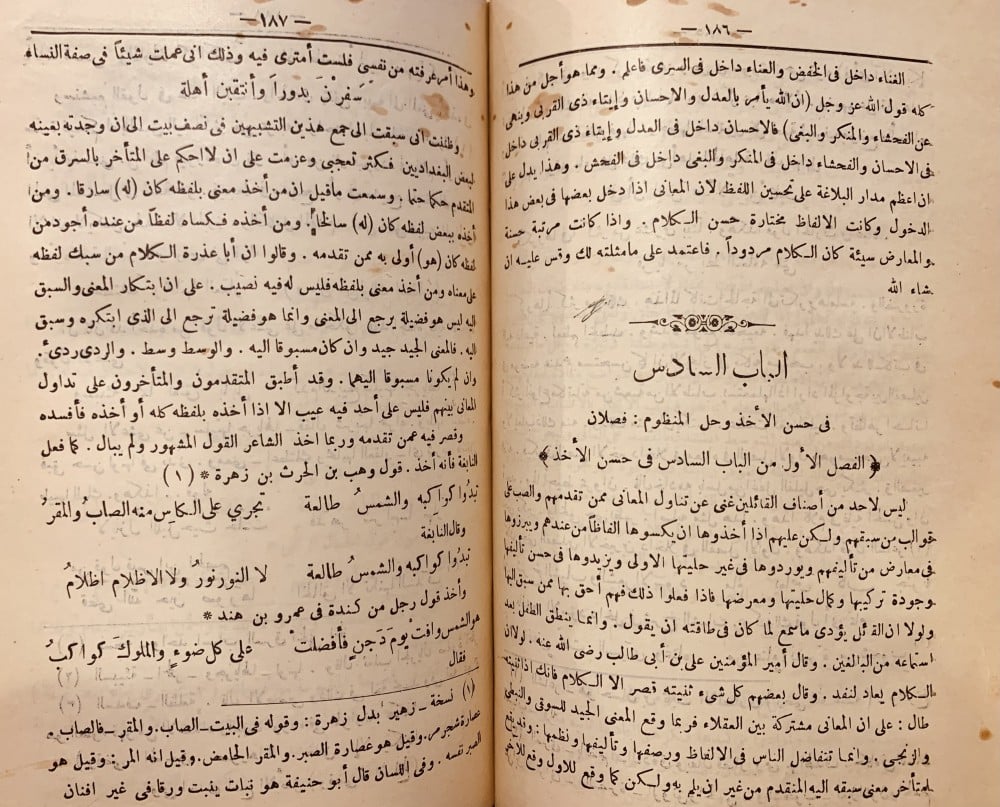 — ١٨٦ —
الغناء داخل فى الخفض والعناء داخل فى السرى فاعلم . ومما هو أجل من هذا
كله قول الله عز وجل (ان الله يأمر بالعدل والاحسان وإيتاء ذى القربى وينهى
عن الفحشاء والمنكر والبغى) فالاحسان داخل فى العدل وإيتاء ذى القربى داخل
فى الاحسان والفحشاء داخل فى المنكر والبغى داخل فى الفحش . وهذا يدل على
ان اعظم مدار البلاغة على تحسين اللفظ لان المعانى اذا دخل بعضها فى بعض هذا
الدخول وكانت الالفاظ مختارة حسن الكلام . واذا كانت مرتبة حسنة
والمعارض سيئة كان الكلام مردوداً . فاعتمد على مامثلته لك وقس عليه ان
شاء الله
الباب السادس
فى حسن الأخذ وحل المنظوم : فصلان
﴿ الفصل الأول من الباب السادس فى حسن الأخذ ﴾
ليس لاحد من أصناف القائلين غنى عن تناول المعانى ممن تقدمهم والصب على
قوالب من سبقهم ولكن عليهم اذا أخذوها ان يكسوها الفاظاً من عندهم ويبرزوها
فى معارض من تأليفهم ويوردوها فى غير حليتها الاولى ويزيدوها فى حسن تأليفها
وجودة تركيبها وكمال حليتها ومعرضها فاذا فعلوا ذلك فهم أحق بها ممن سبق اليها
ولولا ان القائل يؤدى ماسمع لما كان فى طاقته ان يقول . وانما ينطق الطفل بعد
استماعه من البالغين . وقال أمير المؤمنين على بن أبى طالب رضى الله عنه . لولا ان
الكلام يعاد لنفد . وقال بعضهم كل شىء ثنيته قصر الا الكلام فانك اذا ثنيته
طال : على ان المعانى مشتركة بين العقلاء فربما وقع المعنى الجيد للسوقى والنبطى
والزنجى . وانما تتفاضل الناس فى الالفاظ ورصفها وتأليفها ونظمها : وقد يقع
للمتأخر معنى سبقه اليه المتقدم من غير ان يلم به ولكن كما وقع للاول وقع للآخر
— ١٨٧ —
وهذا أمر عرفته من نفسى فلست أمترى فيه وذلك انى عملت شيئاً فى صفة النساء
سَفَرْنَ بدوراً وأنتقبن أهلة
وظننت انى سبقت الى جمع هذين التشبيهين فى نصف بيت الى ان وجدته بعينه
لبعض البغداديين فكثر تعجبى وعزمت على ان لا احكم على المتأخر بالسرق من
المتقدم حكما حتما . وسمعت ماقيل ان من أخذ معنى بلفظه كان (له) سارقا . ومن
أخذه ببعض لفظه كان (له) سالخاً . ومن أخذه فكساه لفظاً من عنده أجود من
لفظه كان (هو) أولى به ممن تقدمه . وقالوا ان أبا عذرة الكلام من سبك لفظه
على معناه ومن أخذ معنى بلفظه فليس له فيه نصيب . على ان ابتكار المعنى والسبق
اليه ليس هو فضيلة يرجع الى المعنى وانما هو فضيلة ترجع الى الذى ابتكره وسبق
اليه . فالمعنى الجيد جيد وان كان مسبوقا اليه . والوسط وسط . والردى ردىء .
وان لم يكونا مسبوقا اليهما . وقد أطبق المتقدمون والمتأخرون على تداول
المعانى بينهم فليس على أحد فيه عيب الا اذا أخذه بلفظه كله أو أخذه فأفسده
وقصر فيه عمن تقدمه وربما اخذ الشاعر القول المشهور ولم يبال . كما فعل
النابغة فأنه أخذ . قول وهب بن الحرث بن زهرة * (١)
تبدُوا كواكبه والشمسُ طالعة تجري على الكاس منه الصابُ والمقرُ
وقال النابغة
تبدُوا كواكبه والشمسُ طالعة لا النورنورٌ ولا الاظلام اظلامُ
وأخذ قول رجل من كندة فى عمرو بن هند *
هو الشمس وافت يومَ دَجنٍ فأفضلتْ على كل ضوءٍ والملوكَ كواكبُ
فقال
(١) نسخة ــ زهير بدل زهرة : وقوله فى البيت ــ الصاب ــ والمقر ــ فالصاب ــ
عصارة شجر مر. وقيل هو عصارة الصبر. والمقر الحامض. وقيل انه المر : وقيل هو
الصبر نفسه . وفى اللسان قال أبو حنيفة هو نبات ينبت ورقا فى غير افنان